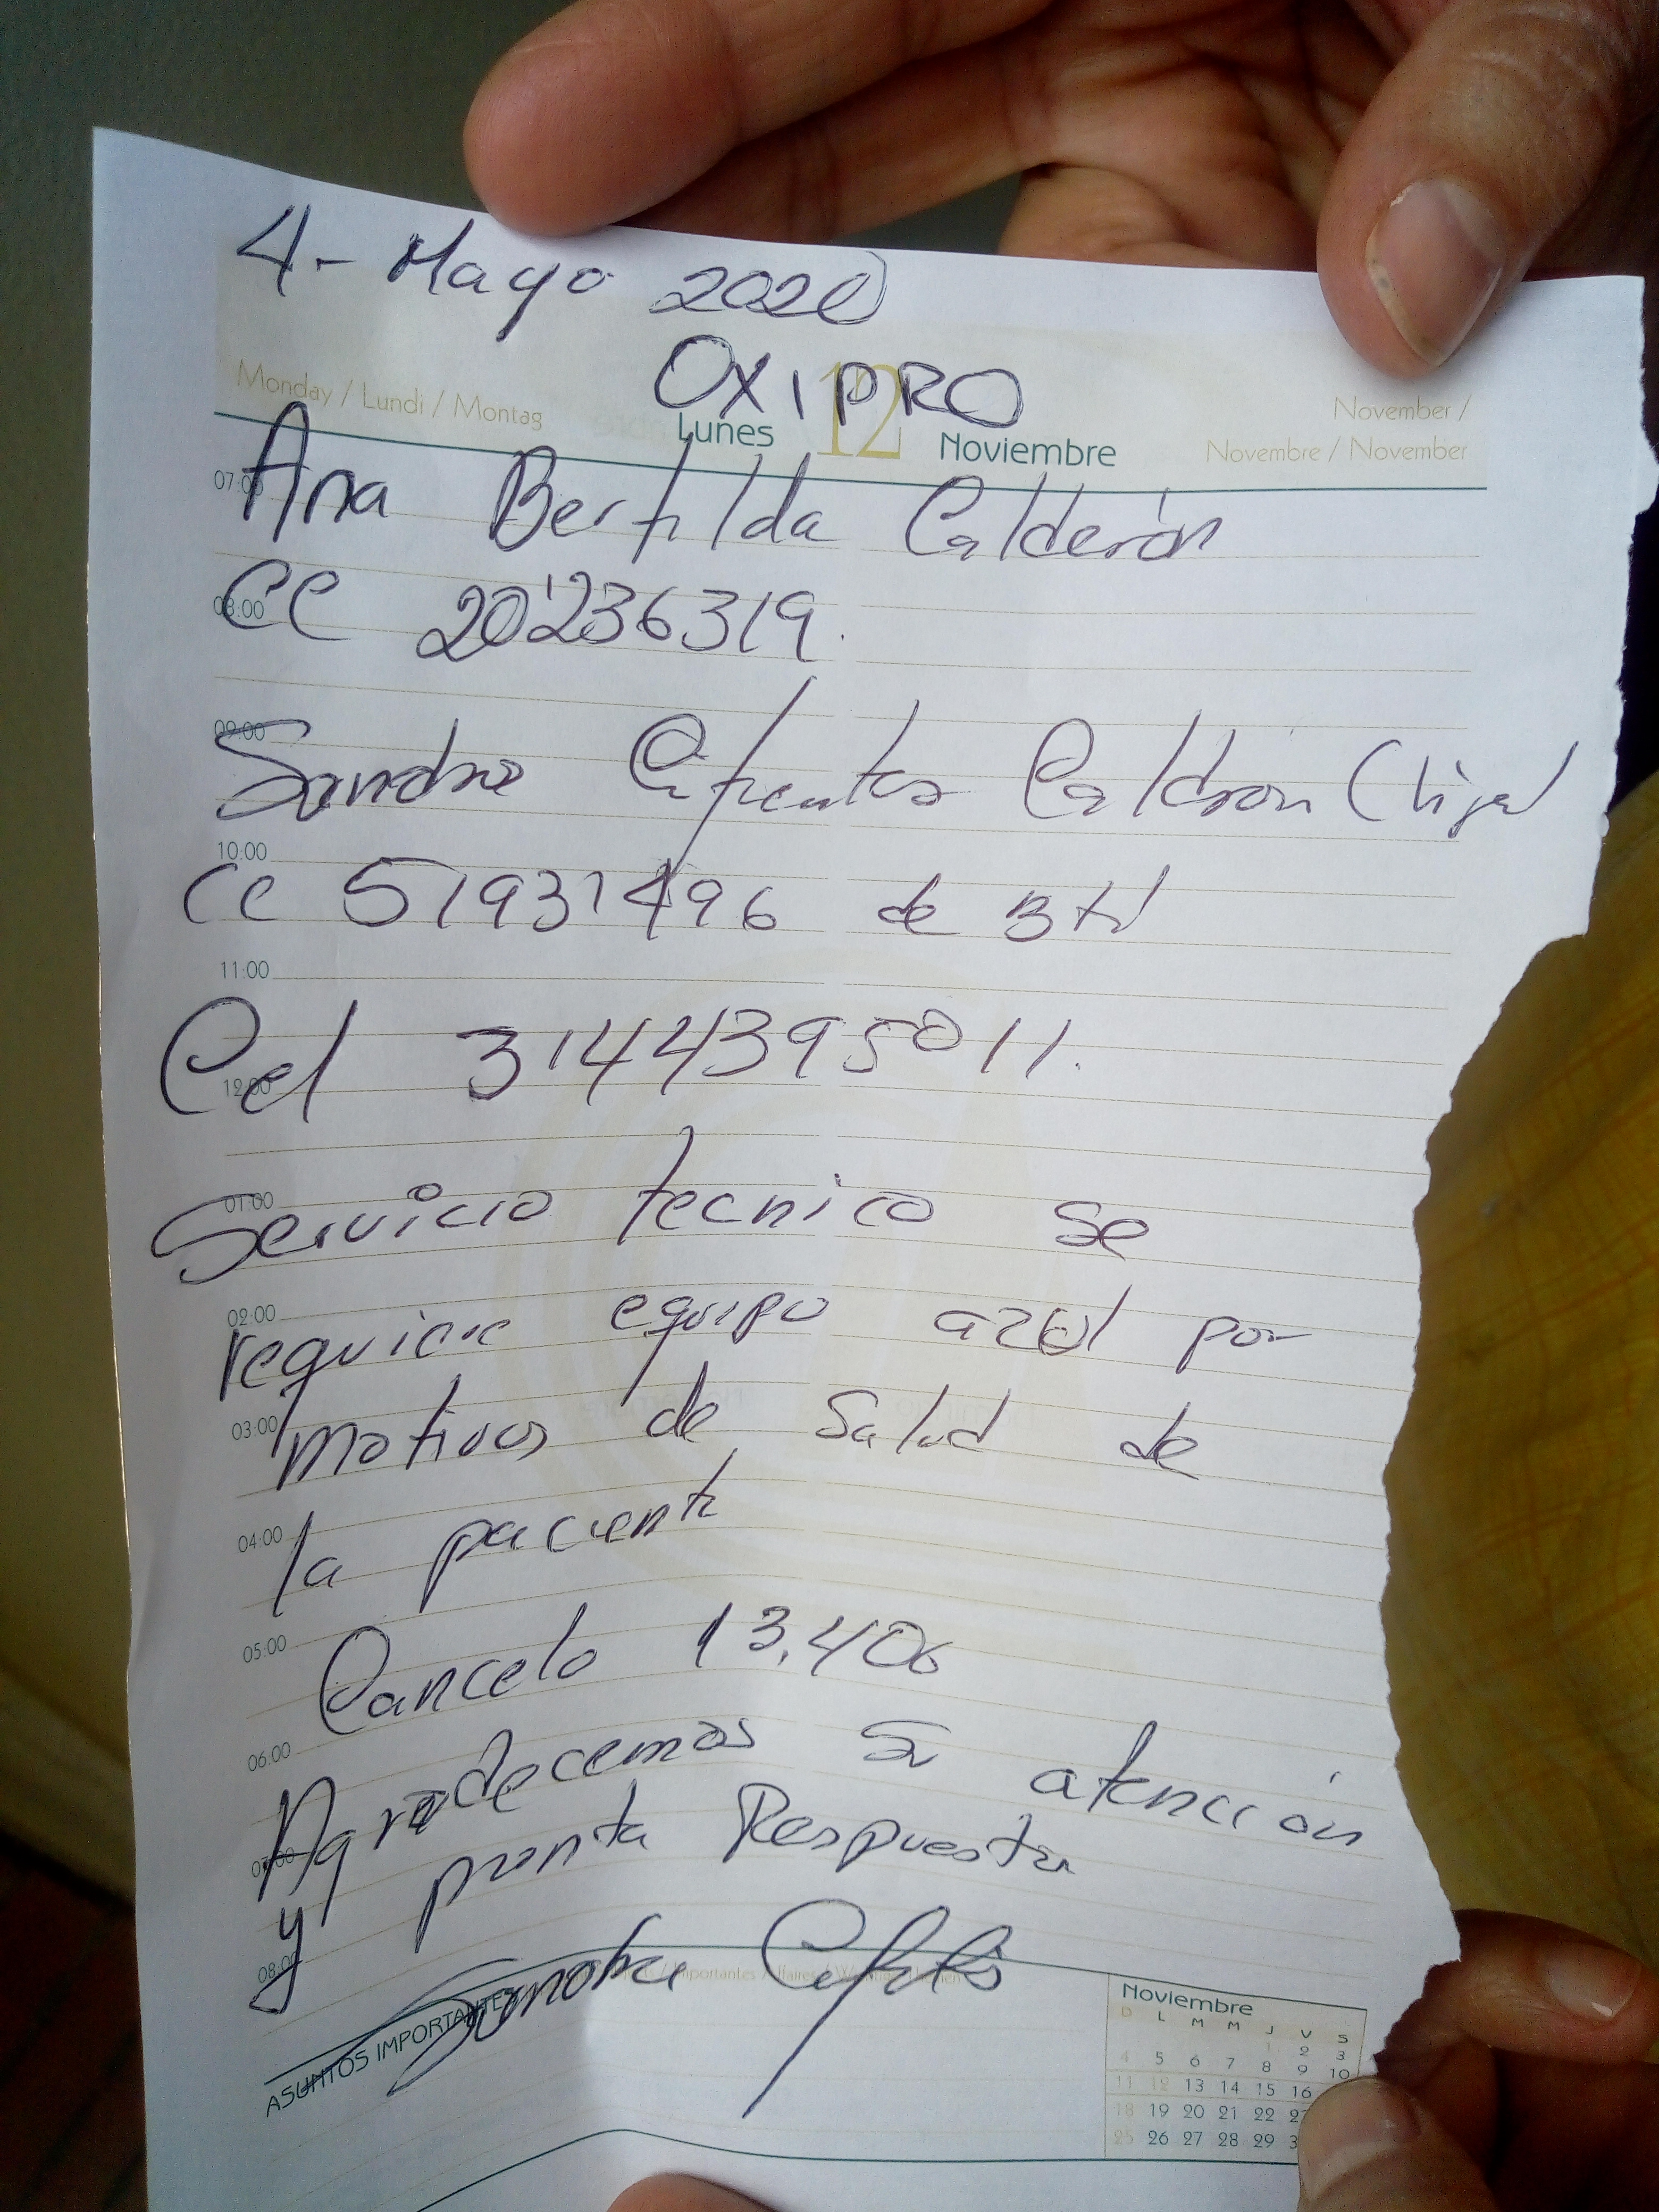 4- Mayo 2020
OXIPRO
Monday / Lundi / Montag
Lunes 12 Noviembre
November /
Novembre / November
07:00
Ana Bertilda Calderón
08:00
CC 20'236319.
09:00
Sandra Cifuentes Calderon (hija)
10:00
CC 51931496 de Bta
11:00
Cel 3144395011.
12:00
01:00
Servicio tecnico se
02:00
requiere equipo azul por
03:00
motivos de salud de
04:00
la paciente
05:00
Cancelo 13.406
06:00
Agradecemos su atención
07:00
y pronta Respuesta
08:00
Sandra Cifuentes
ASUNTOS IMPORTANTES
Noviembre
D L M M J V S
1 2 3
4 5 6 7 8 9 10
11 12 13 14 15 16
18 19 20 21 22
25 26 27 28 29